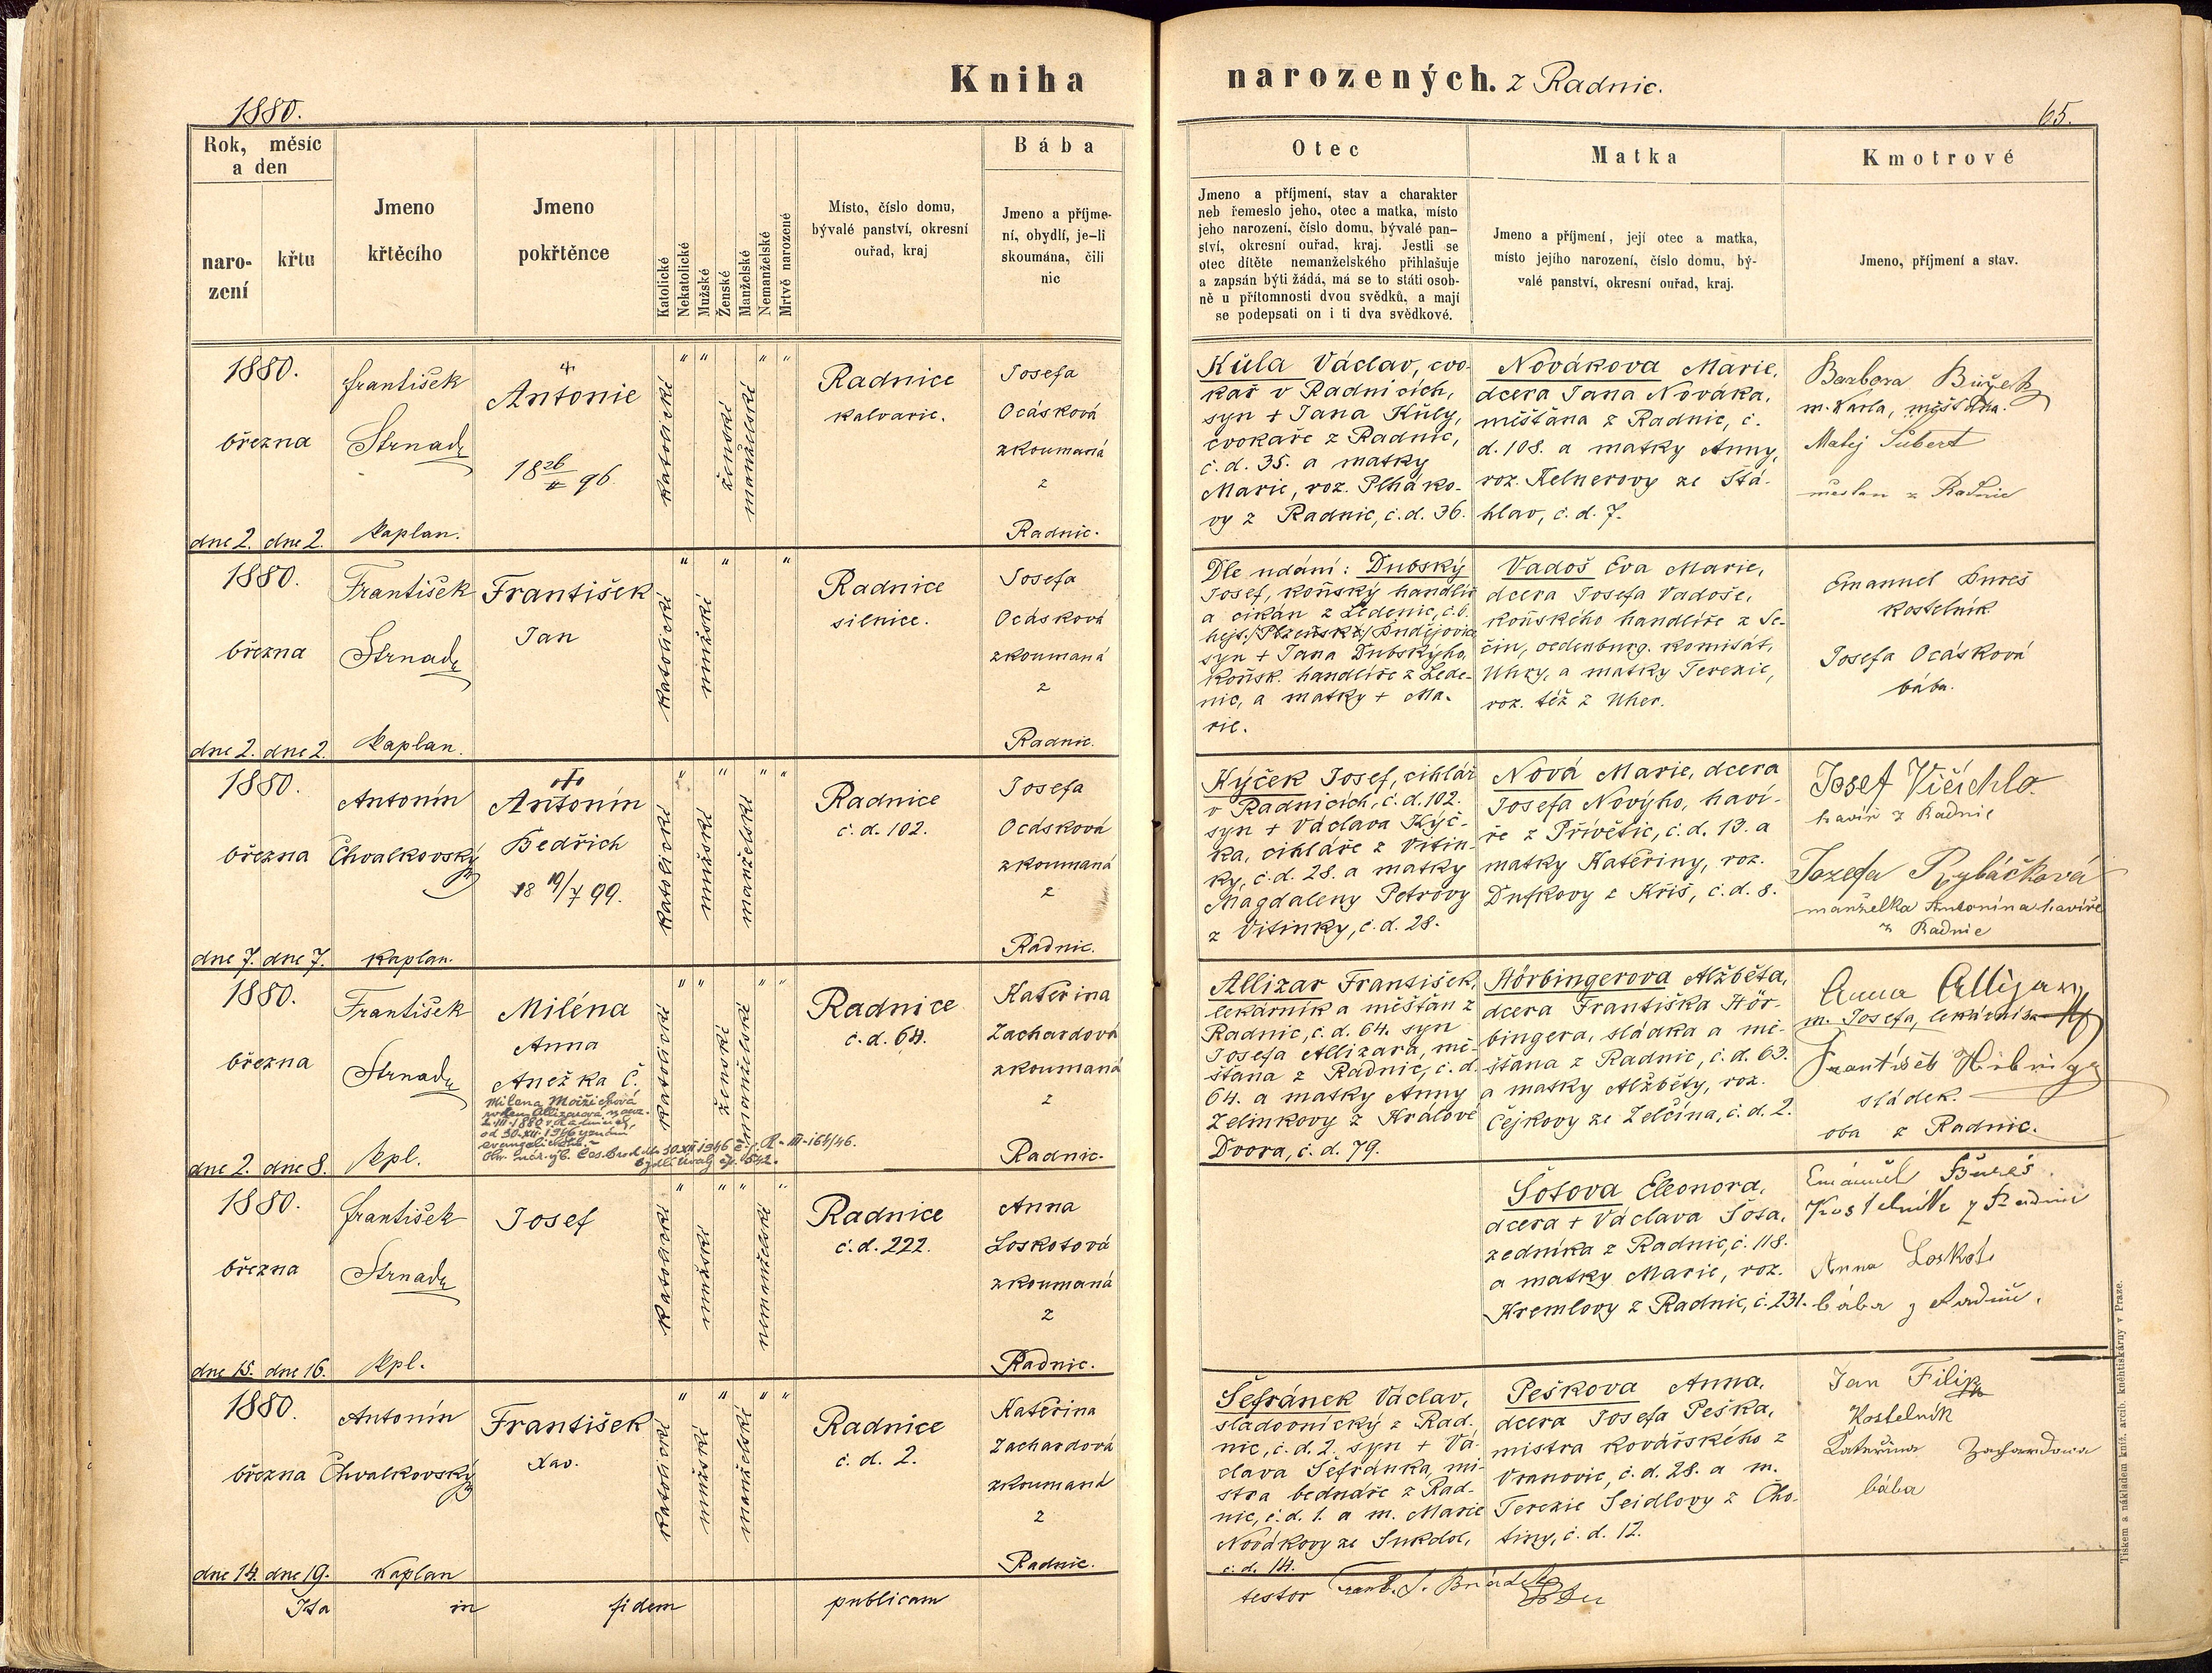 Kniha narozených. z Radnic.
1880.
65.
Rok, měsíc
a den
naro-
zení
křtu
Jmeno
křtěcího
Jmeno
pokřtěnce
Katolické
Nekatolické
Mužské
Ženské
Manželské
Nemanželské
Mrtvě narozené
Místo, číslo domu,
bývalé panství, okresní
ouřad, kraj
Bába
Jmeno a příjme-
ní, obydlí, je-li
skoumána, čili
nic
Otec
Jmeno a příjmení, stav a charakter
neb řemeslo jeho, otec a matka, místo
jeho narození, číslo domu, bývalé pan-
ství, okresní ouřad, kraj. Jestli se
otec dítěte nemanželského přihlašuje
a zapsán býti žádá, má se to státi osob-
ně u přítomnosti dvou svědků, a mají
se podepsati on i ti dva svědkové.
Matka
Jmeno a příjmení, její otec a matka,
místo jejího narození, číslo domu, bý-
valé panství, okresní ouřad, kraj.
Kmotrové
Jmeno, příjmení a stav.
1880.
března
dne 2. dne 2.
František
Strnad
kaplan.
Antonie
18 26/II 96.
katolické
ženské
manželské
Radnice
kalvarie.
Josefa
Ocásková
zkoumaná
z
Radnic.
Kůla Václav, cvo-
kař v Radnicích,
syn + Jana Kůly,
cvokaře z Radnic,
č. d. 35. a matky
Marie, roz. Plháko-
vy z Radnic, č. d. 36.
Novákova Marie,
dcera Jana Nováka,
měšťana z Radnic, č.
d. 108. a matky Anny,
roz. Kelnerovy ze Stá-
hlav, č. d. 7.
Barbora
m. Karla, měšťana.
Matěj Šubert
měšťan z Radnic
1880.
března
dne 2. dne 2.
František
Strnad
kaplan.
František
Jan
katolické
mužské
Radnice
silnice.
Josefa
Ocásková
zkoumaná
z
Radnic.
Dle udání: Dubský
Josef, koňský handlíř
a cikán z Ledenic, č. 6.
hejt. /Plzeňsk/ Budějovic
syn + Jana Dubskýho,
koňsk. handlíře z Lede-
nic, a matky + Ma-
rie.
Vadoš Eva Marie,
dcera Josefa Vadoše,
koňského handlíře z Se-
čin, oedenburg. komitát,
Uhry, a matky Terezie,
roz. též z Uher.
Emanuel Bureš
kostelník
Josefa Ocásková
bába.
1880.
března
dne 7. dne 7.
Antonín
Chvalkovský
kaplan.
Antonín
Bedřich
18 19/7 99.
katolické
mužské
manželské
Radnice
č. d. 102.
Josefa
Ocásková
zkoumaná
z
Radnic.
Kýček Josef, cihlář
v Radnicích, č. d. 102.
syn + Václava Kýč-
ka, cihláře z Vitin-
ky, č. d. 28. a matky
Magdaleny Petrovy
z Vitinky, č. d. 28.
Nová Marie, dcera
Josefa Novýho, haví-
ře z Přívětic, č. d. 13. a
matky Kateřiny, roz.
Dufkovy z Kříš, č. d. 8.
Josef Vičichlo
havíř z Radnic
Jozefa Rybáčková
manželka Antonína havíře
z Radnic
1880.
března
dne 2. dne 8.
František
Strnad
kpl.
Miléna
Anna
Anežka Č.
Milena
od 30.XII.1946
katolické
ženské
manželské
Radnice
č. d. 64.
Kateřina
Zachardová
zkoumaná
z
Radnic.
Allizar František,
lekárník a měšťan z
Radnic, č. d. 64. syn
Josefa Allizara, mě-
šťana z Radnic, č. d.
64. a matky Anny
Zelinkovy z Králové
Dvora, č. d. 79.
Hörbingerova Alžběta,
dcera Františka Hör-
bingera, sládka a mě-
šťana z Radnic, č. d. 63.
a matky Alžběty, roz.
Čejkovy ze Zelčína, č. d. 2.
Anna Allizar
m. Josefa, lekárníka
František
sládek.
oba z Radnic.
1880.
března
dne 15. dne 16.
František
Strnad
kpl.
Josef
katolické
mužské
nemanželské
Radnice
č. d. 222.
Anna
Loskotová
zkoumaná
z
Radnic.
Šotova Eleonora,
dcera + Václava Šota,
zedníka z Radnic, č. 118.
a matky Marie, roz.
Kremlovy z Radnic, č. 231.
Emanuel Bureš
Kostelník z Radnic
Anna Loskot
bába z Radnic.
1880.
března
dne 14. dne 19.
Antonín
Chvalkovský
kaplan
František
Xav.
katolické
mužské
manželské
Radnice
č. d. 2.
Kateřina
Zachardová
zkoumaná
z
Radnic.
Šefránek Václav,
sladovnický z Rad-
nic, č. d. 2. syn + Vá-
clava Šefránka, mi-
stra bednáře z Rad-
nic, č. d. 1. a m. Marie
Novákovy ze Sukdol,
č. d. 14.
Peškova Anna,
dcera Josefa Peška,
mistra kovářského z
Vranovic, č. d. 28. a m.
Terezie Seidlovy z Cho-
tiny, č. d. 12.
Jan Filip
Kostelník
Kateřina Zachardova
bába
Ita in fidem publicam
testor
Tiskem a nákladem kníž. arcib. knéhtiskárny v Praze.